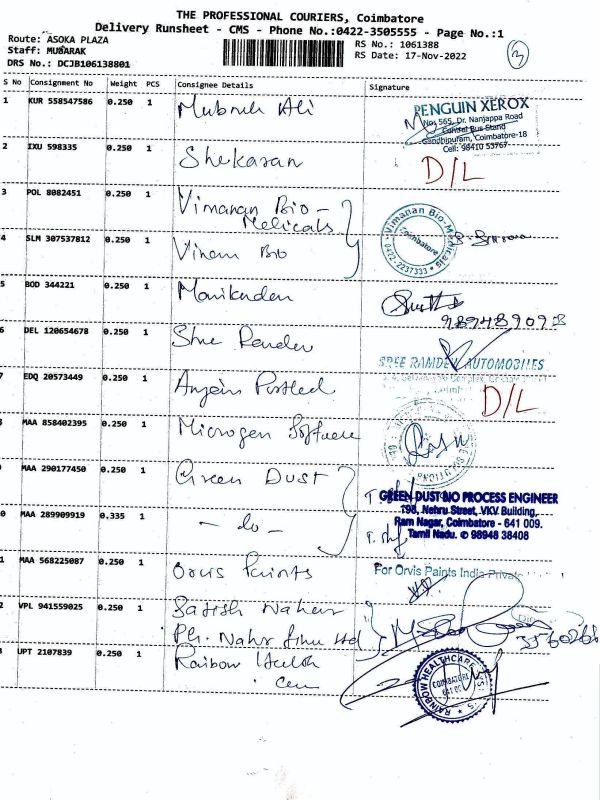 THE PROFESSIONAL COURIERS, Coimbatore
Delivery Runsheet - CMS - Phone No.:0422-3505555 - Page No.:1
Route: ASOKA PLAZA
Staff: MUBARAK
DRS No.: DCJB106138801
RS No.: 1061388
RS Date: 17-Nov-2022
3
S No Consignment No Weight PCS Consignee Details Signature
1 KUR 558547586 0.250 1 Mubruk Ali
PENGUIN XEROX
No: 565, Dr. Nanjappa Road
Central Bus Stand
Gandhipuram, Coimbatore-18
Cell: 98410 53767
2 IXU 598335 0.250 1 Shekaran D/L
3 POL 8082451 0.250 1 Vimanan Bio-
Melicals
Vimanan Bio-Medicals
Coimbatore
0422-2237333
4 SLM 307537812 0.250 1 Vinam Bio
5 BOD 344221 0.250 1 Manikandan
989489092
6 DEL 120654678 0.250 1 Shre Ramdev
SREE RAMDEV AUTOMOBILES
7 EDQ 20573449 0.250 1 D/L
MAA 858402395 0.250 1 Microgen Software
MAA 290177450 0.250 1 Green Dust
GREEN DUST BIO PROCESS ENGINEER
198, Nehru Street, VKV Building,
Ram Nagar, Coimbatore - 641 009.
Tamil Nadu. 98948 38408
0 MAA 289909919 0.335 1 - do -
1 MAA 568225087 0.250 1 Orvis Paints
For Orvis Paints India Private
2 VPL 941559025 0.250 1 Satish Naher
UPT 2107839 0.250 1 Raibow Health
Cen
RAINBOW HEALTHCARE
COIMBATORE